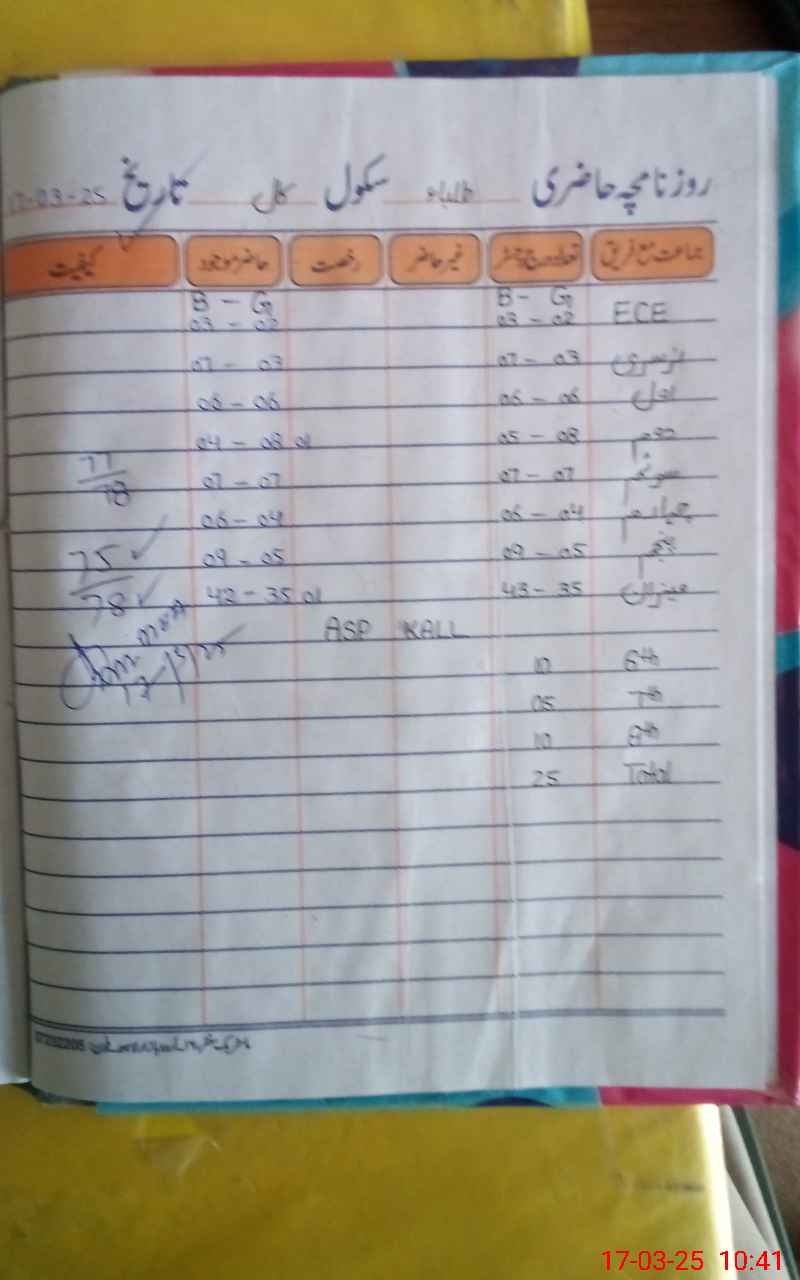 روزنامچہ حاضری طلباء سکول کل تاریخ 17-03-25
جماعت مع فریق تعداد درج رجسٹر غیر حاضر رخصت حاضر موجود کیفیت
B - G B - G
ECE 03 - 02 03 - 02
نرسری 07 - 03 07 - 03
اول 06 - 06 06 - 06
دوم 05 - 08 01 04 - 08
سوئم 07 - 07 07 - 07 77/78
چہارم 06 - 04 06 - 04
پنجم 09 - 05 09 - 05 75/78
میزان 43 - 35 01 42 - 35
ASP KALL
6th 10
7th 05
8th 10
Total 25
17-03-25 10:41